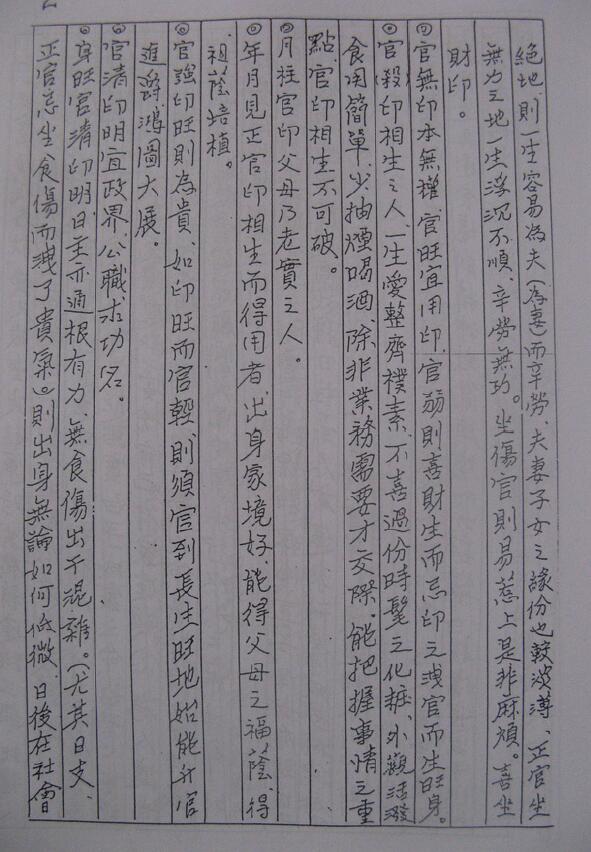 絕地則一生容易為夫(為妻)而辛勞、夫妻子女之緣份也較波薄、正官坐
無力之地一生浮沉不順、辛勞無功。坐傷官則易惹上是非麻煩。喜坐
財印。
◎官無印本無權、官旺宜用印、官弱則喜財生而忌印之洩官而生旺身。
◎官(殺)印相生之人一生愛整齊樸素、不喜過份時髦之化粧、外觀活潑
食用簡單、少抽煙喝酒、除非業務需要才交際。能把握事情之重
點、官印相生不可破。
◎月柱官印父母乃老實之人。
◎年月見正官印相生而得用者、出身家境好、能得父母之福蔭、得
祖蔭培植。
◎官強印旺則為貴、如印旺而官輕、則須官到長生旺地始能升官
進爵、鴻圖大展。
◎官清印明宜政界、公職求功名。
◎身旺官清印明、日主亦通根有力、無食傷出干混雜。(尤其日支、
正官忌坐食傷而洩了貴氣)。則出身無論如何低微、日後在社會